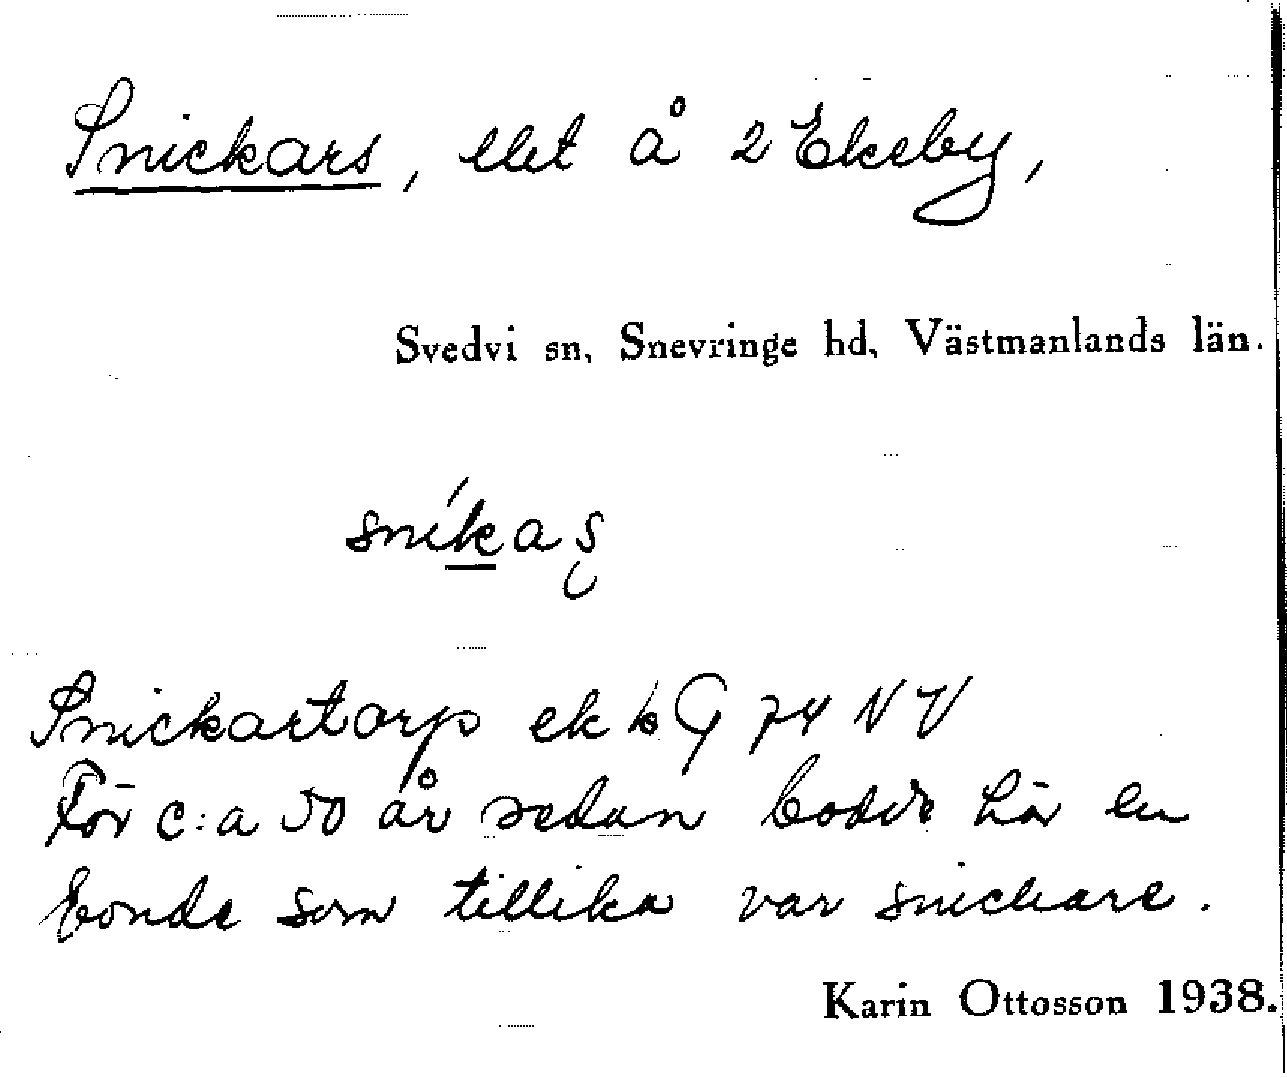 Snickars, elet å 2 Ekeby,
Svedvi sn, Snevringe hd, Västmanlands län.
snikaş
Snickartorp ek bG 74 NV
För c:a 50 år sedan bodde här en
bonde som tillika var snickare.
Karin Ottosson 1938.